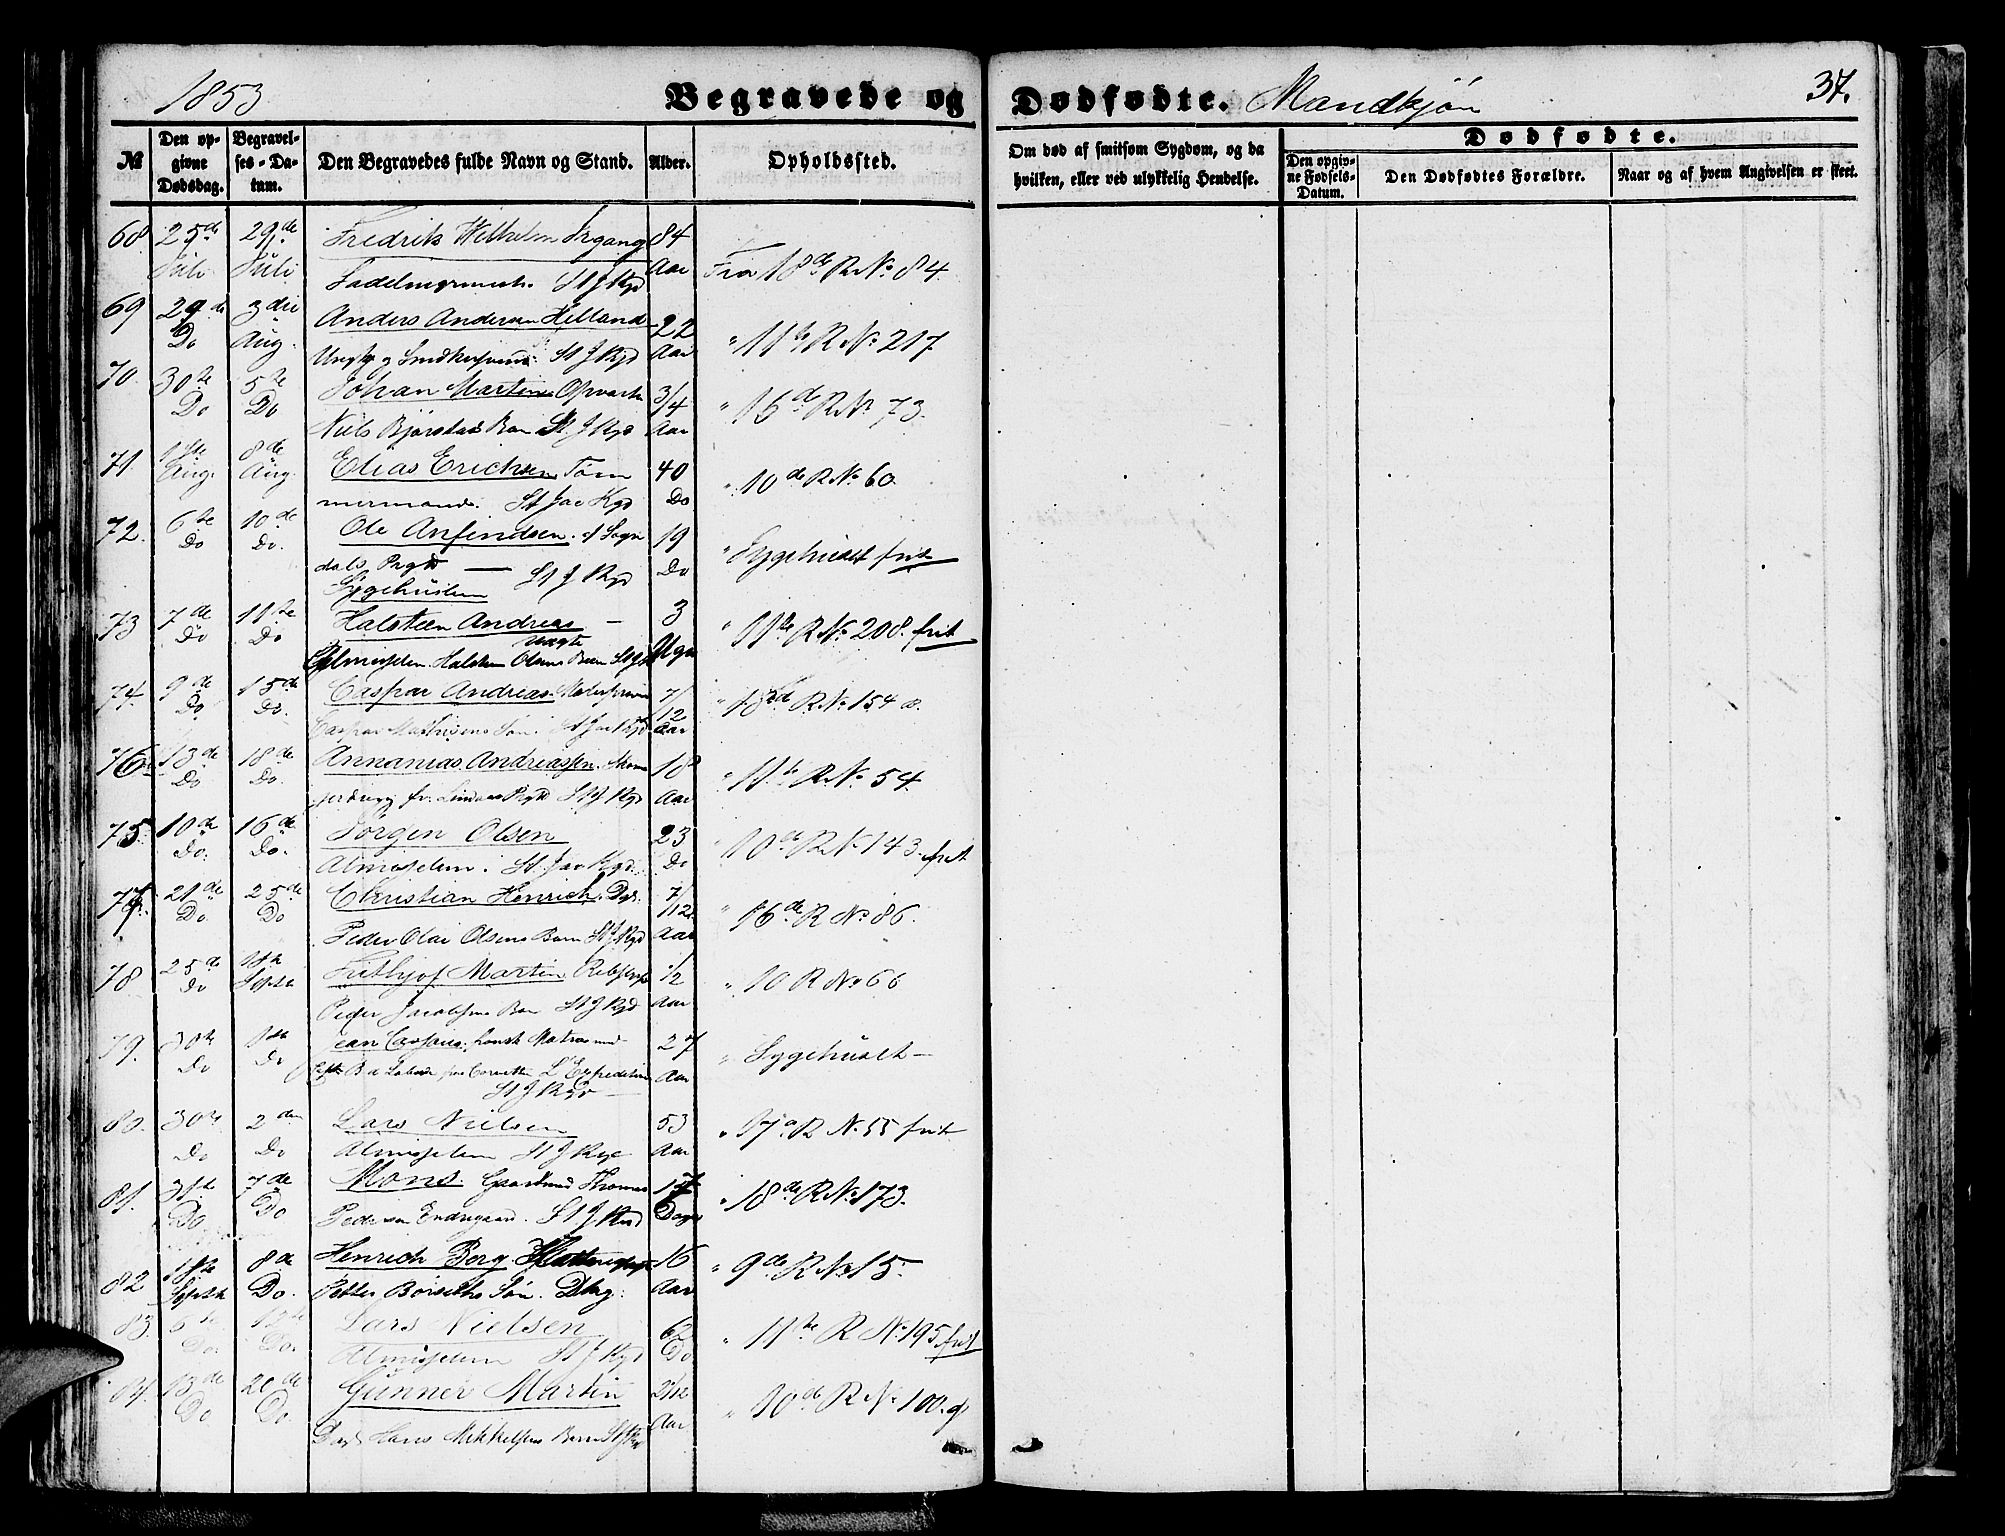 1853
Begravede og Dødfødte. Mandkjøn
37.
№
Den opgivne Dødsdag.
Begravelses-Datum.
Den Begravedes fulde Navn og Stand.
Alder.
Opholdssted.
Om død af smitsom Sygdom, og da hvilken, eller ved ulykkelig Hendelse.
Dødfødte.
Den opgivne Fødsels-Datum.
Den Dødfødtes Forældre.
Naar og af hvem Angivelsen er skeet.
68. 25de 29de Fredrik Wilhelm Irgang 84
Juli Juli St J Kgd Aar Fra 18de R No 84.
69 29de 3die Anders Andersen Helland 22
Do Aug. St J Kgd Aar " 11te R No 217
70. 30te 5te Johan Martin 3/4
Do Do Niels Bjørstad Barn St. J Kgd Aar " 15de R No 73.
71. 1ste 8de Elias Erichsen Tøm 40
Aug. Aug. mermand. St Jac Kgd Do " 10de R No 60
72. 6te 10de Ole Anfindsen. af Sogn 19
Do Do. dals Prgld — St J Kgd Do " Sygehuset frit
Sygehuslem
73 7de 11te Halsteen Andreas — 3
Do Do Almisselem Halsten Olsens Barn St J Ugr " 11te R No 208. frit
74. 9de 15de Caspar Andreas. 7/12
Do. Do. Caspar Mathisens Søn. St Jac Kgd Aar " R No 154 a.
76 13de 18de Annanias Andreassen. 18
Do Do. fr. Lindaas Prgld St J Kgd Aar " 11te R No. 54.
75. 10de 16de Jørgen Olsen 23
Do. Do. Almisselem. St. Jac Kgd. Do " 10de R No 143. frit
77. 21de 25de Christian Henrich. Dgk. 7/12
Do Do Peder Olai Olsens Barn St J Kgd Aar " 16de R No 86.
78 25de 1ste Frithjof Martin 1/2
Do Septr Peder Jacobsens Barn St J Kgd Aar " 10 R No 66
79. 30te 1ste Jean fransk Matros 27
Do Do Corvetten L'Expedition Aar " Sygehuset —
St J Kgd —
80. 30te 2den Lars Nielsen 53
Do Do Almisselem St J Kgd Aar " 17de R No 55 frit
81. 31te 7de Mons. Gaardmd Thomas 17
Do Do Pedersen Endregaard. St J Kgd Dage " 18de R No 173.
82 1ste 8de Henrich Borg 16
Septbr Do. Petter Børseths Søn. Dkg. Aar " 9de R No 15.
83. 6te Lars Nielsen 62
Do. Do. Almisselem St J Kgd Do " 11te R No 195 frit
84. 13de 20de Gunner Martin 2/12
Do Do. Hans Mikkelsens Barn St J Kgd Aar " 10de R No 100. g